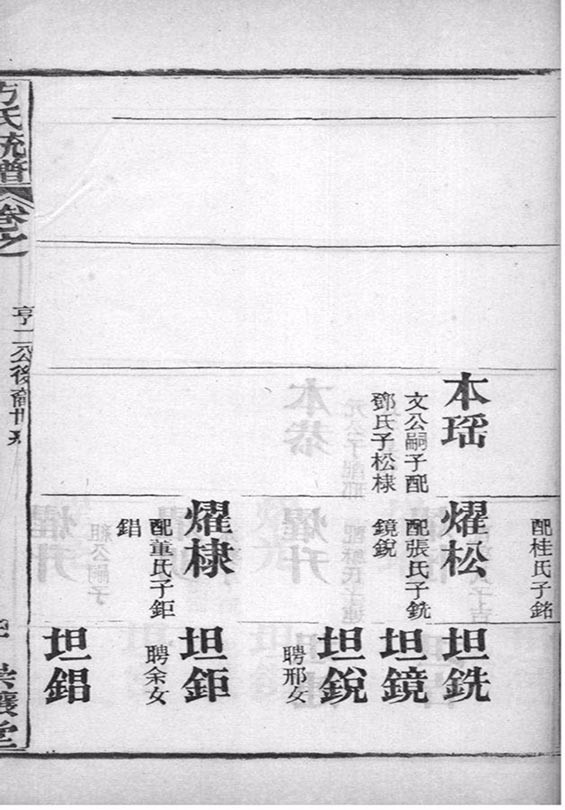 配桂氏子銘
本瑶
文公嗣子配
鄧氏子松棣
燿松
配張氏子銑
鏡銳
燿棣
配董氏子鉅
錩
坦銑
坦鏡
坦銳
聘邢女
坦鉅
聘余女
坦錩
方氏統譜
卷之
亨二公後裔世系